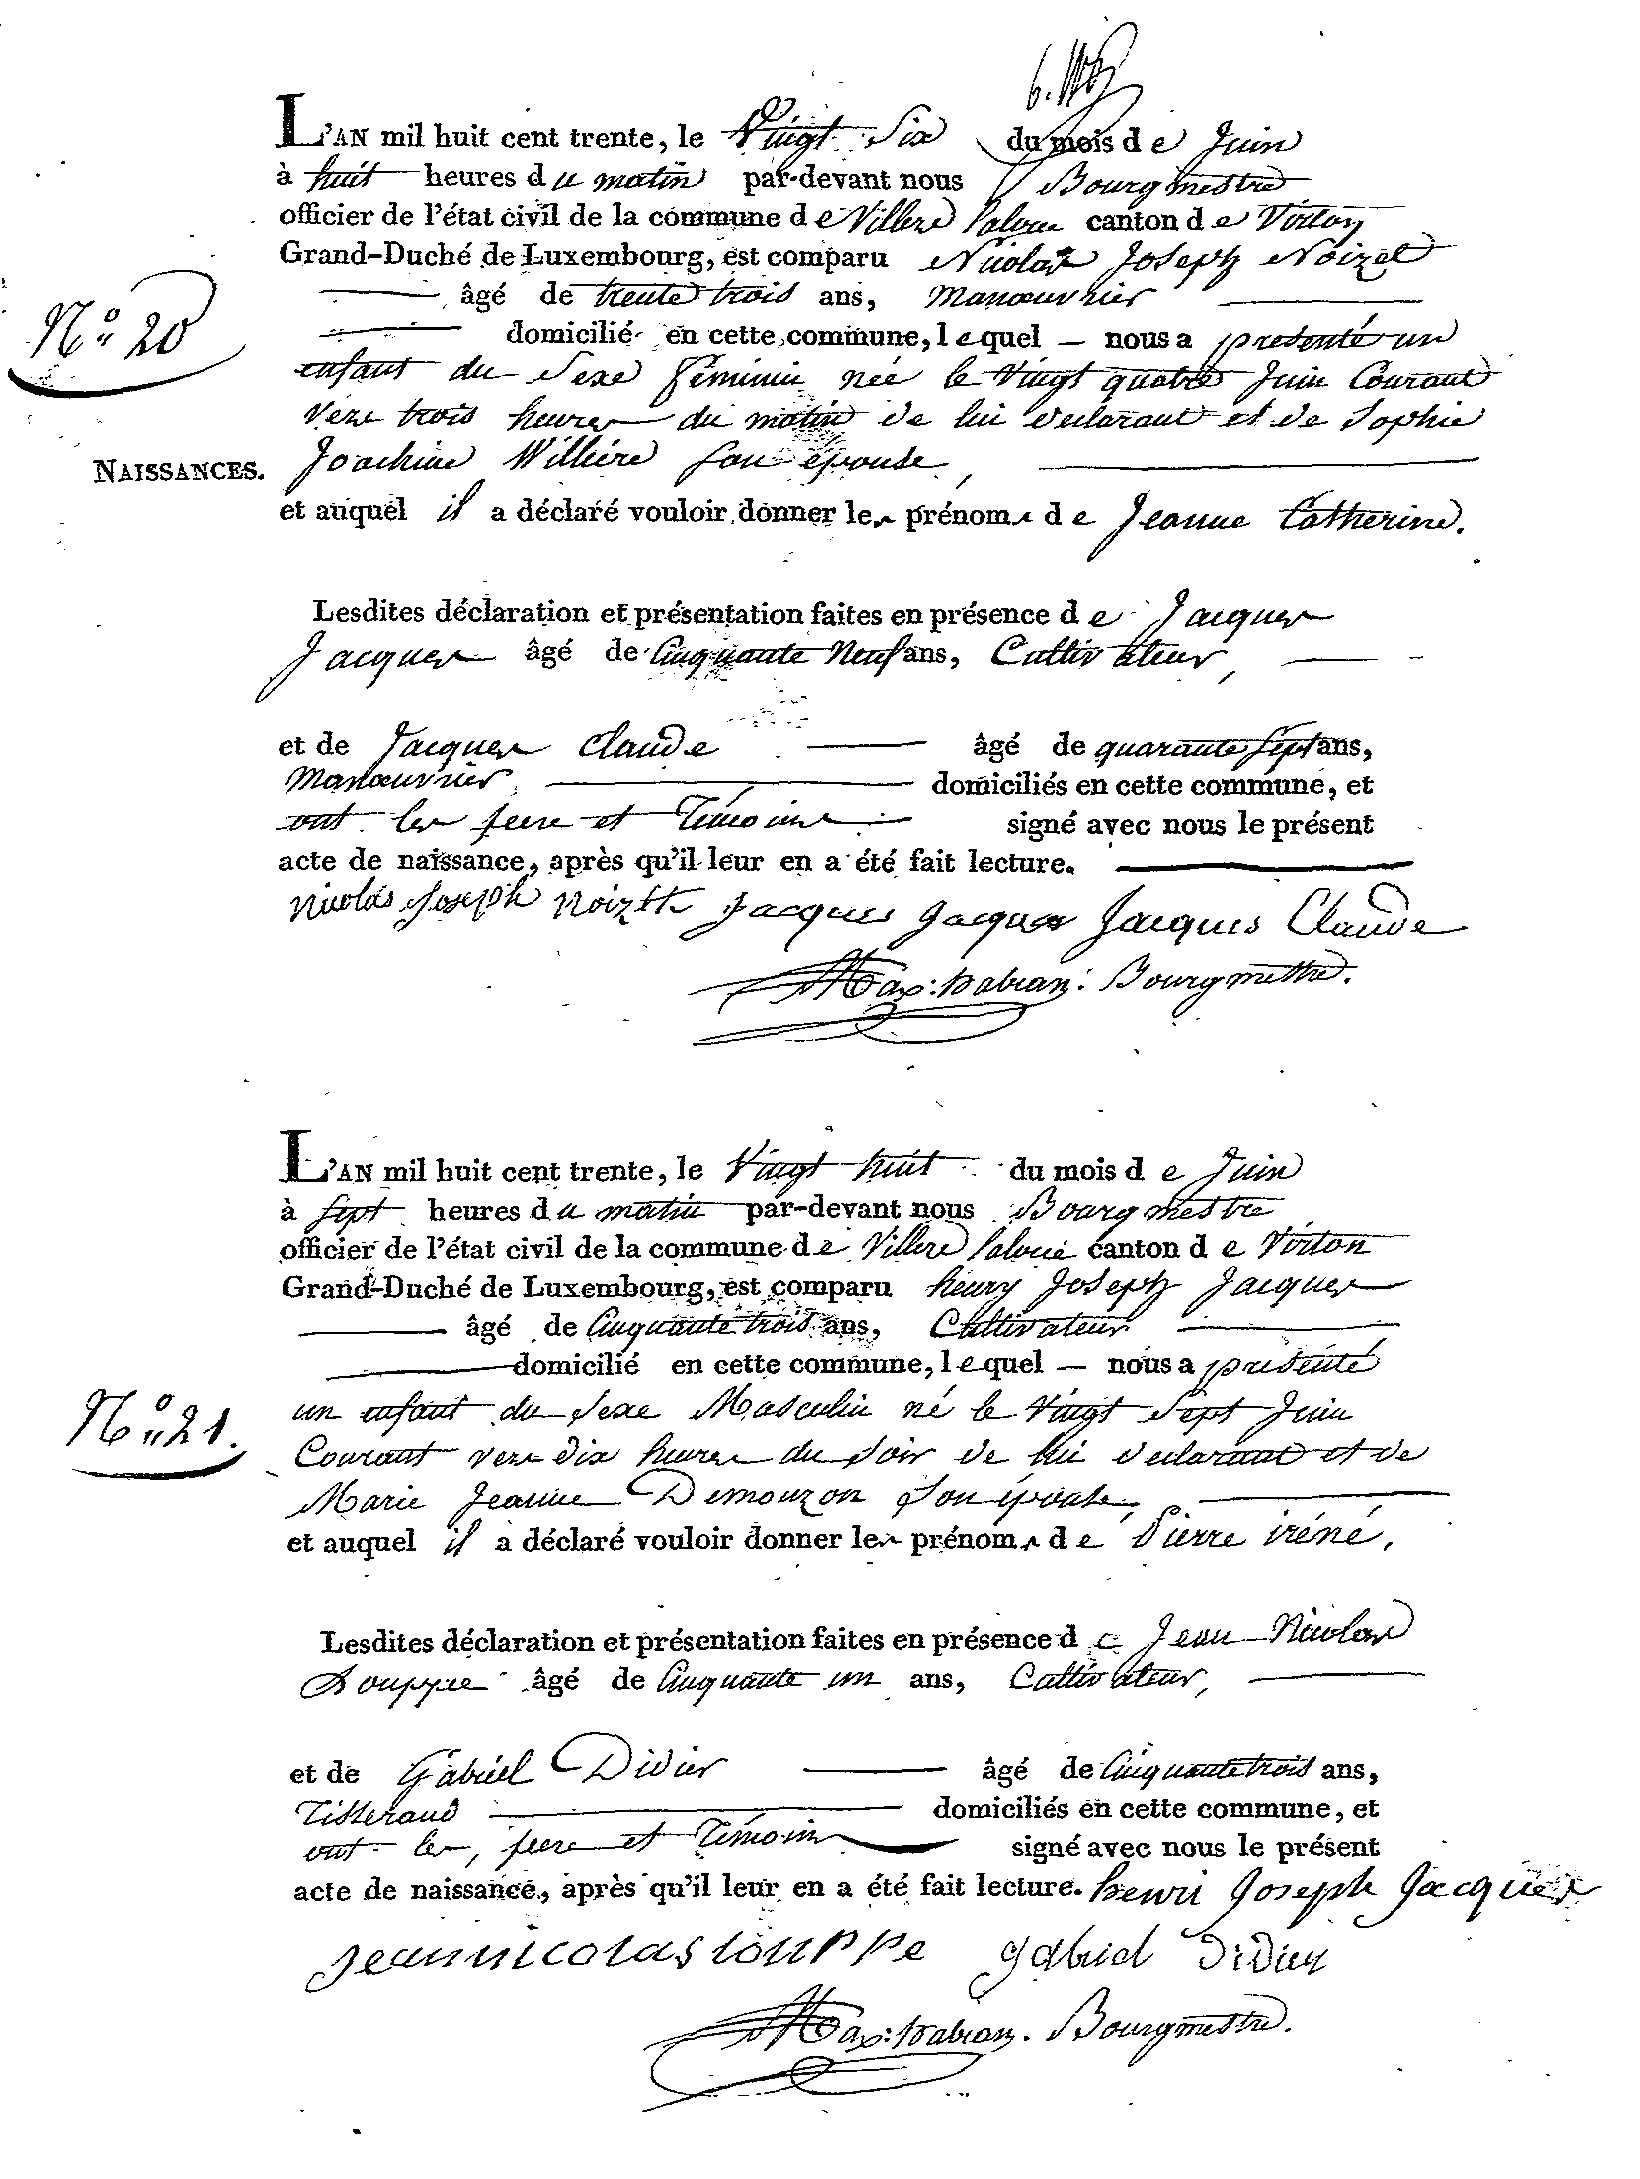 L'AN mil huit cent trente, le Vingt Six du mois de Juin
à huit heures du matin par-devant nous Bourgmestre
officier de l'état civil de la commune de Villers canton de Virton
Grand-Duché de Luxembourg, est comparu Nicolas Joseph Noizet
âgé de trente trois ans, Manœuvrier
N° 20
domicilié en cette commune, lequel — nous a presenté un
enfant du Sexe féminin née le Vingt quatre Juin Courant
vers trois heures du matin de lui declarant et de Sophie
NAISSANCES.
Joachine Willière son épouse,
et auquel il a déclaré vouloir donner les prénoms de Jeanne Catherine.
Lesdites déclaration et présentation faites en présence de Jacques
Jacques âgé de Cinquante Neuf ans, Cultivateur,
et de Jacques Claude âgé de quarante sept ans,
Manœuvrier domiciliés en cette commune, et
ont les pere et Témoins signé avec nous le présent
acte de naissance, après qu'il leur en a été fait lecture.
Nicolas Joseph Noizet Jacques Jacques Jacques Claude
Bourgmestre.
L'AN mil huit cent trente, le Vingt huit du mois de Juin
à sept heures du matin par-devant nous Bourgmestre
officier de l'état civil de la commune de Villers canton de Virton
Grand-Duché de Luxembourg, est comparu henry Joseph Jacques
âgé de Cinquante trois ans, Cultivateur
domicilié en cette commune, lequel — nous a presenté
N° 21.
un enfant du Sexe Masculin né le Vingt Sept Juin
Courant vers dix heures du Soir de lui declarant et de
Marie Jeanne Demouzon Son épouse,
et auquel il a déclaré vouloir donner les prénoms de Pierre iréné.
Lesdites déclaration et présentation faites en présence de Jean Nicolas
Louppe âgé de Cinquante un ans, Cultivateur,
et de Gabriel Didier âgé de Cinquante trois ans,
Tisserand domiciliés en cette commune, et
ont les, pere et Témoins signé avec nous le présent
acte de naissance, après qu'il leur en a été fait lecture. henri Joseph Jacques
jean nicolas louppe gabriel Didier
Bourgmestre.